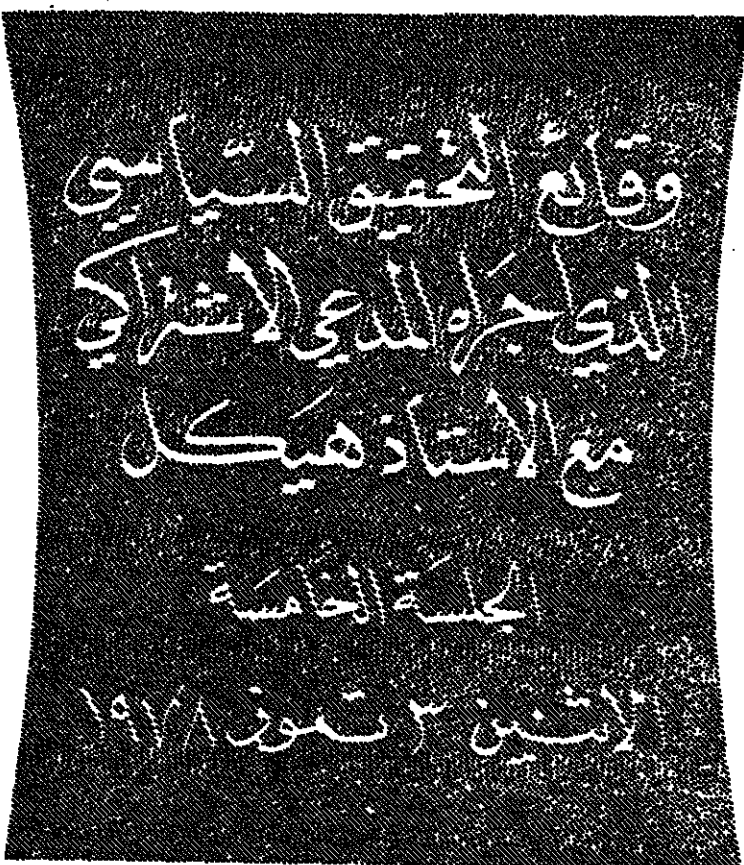 وقائع التحقيق السياسي
الذي أجراه المدعي الاشتراكي
مع الأستاذ هيكل
الجلسة الخامسة
الاثنين ٣ تموز ١٩٧٨